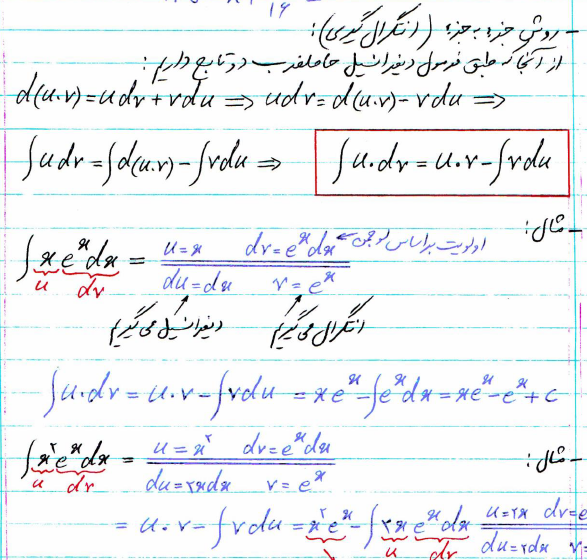 ۱۶
- روش جزء به جزء (انتگرال گیری):
از آنجا که طبق فرمول دیفرانسیل حاصلضرب دو تابع داریم:
d(u.v) = udv + vdu ⟹ udv = d(u.v) - vdu ⟹
∫udv = ∫d(u.v) - ∫vdu ⟹ ∫u.dv = u.v - ∫vdu
- مثال:
∫xe^x dx = u=x dv=e^x dx ← اولویت بر اساس لوجن
u dv du=dx v=e^x
دیفرانسیل می گیریم انتگرال می گیریم
∫u.dv = u.v - ∫vdu = xe^x - ∫e^x dx = xe^x - e^x + c
- مثال:
∫x^۲e^x dx = u=x^۲ dv=e^x dx
u dv du=۲xdx v=e^x
= u.v - ∫vdu = x^۲e^x - ∫۲xe^x dx u=۲x dv=e
u dv du=۲dx v=